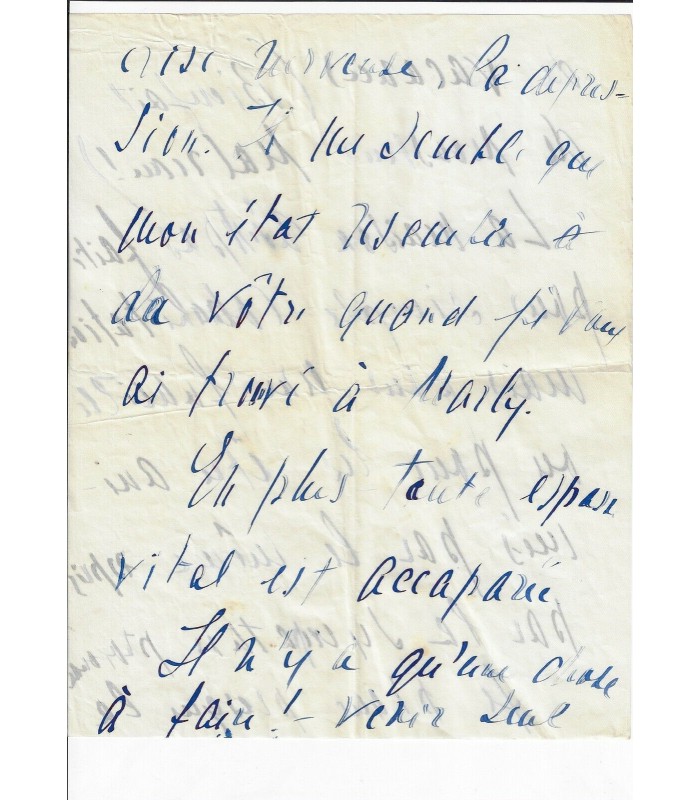 crise nerveuse la dépres-
sion. Il me semble que
mon état ressemble à
la vôtre quand je vous
ai trouvé à Marly.
En plus toute espace
vital est accaparé
Il n'y a qu'une chose
à faire! - venir seul